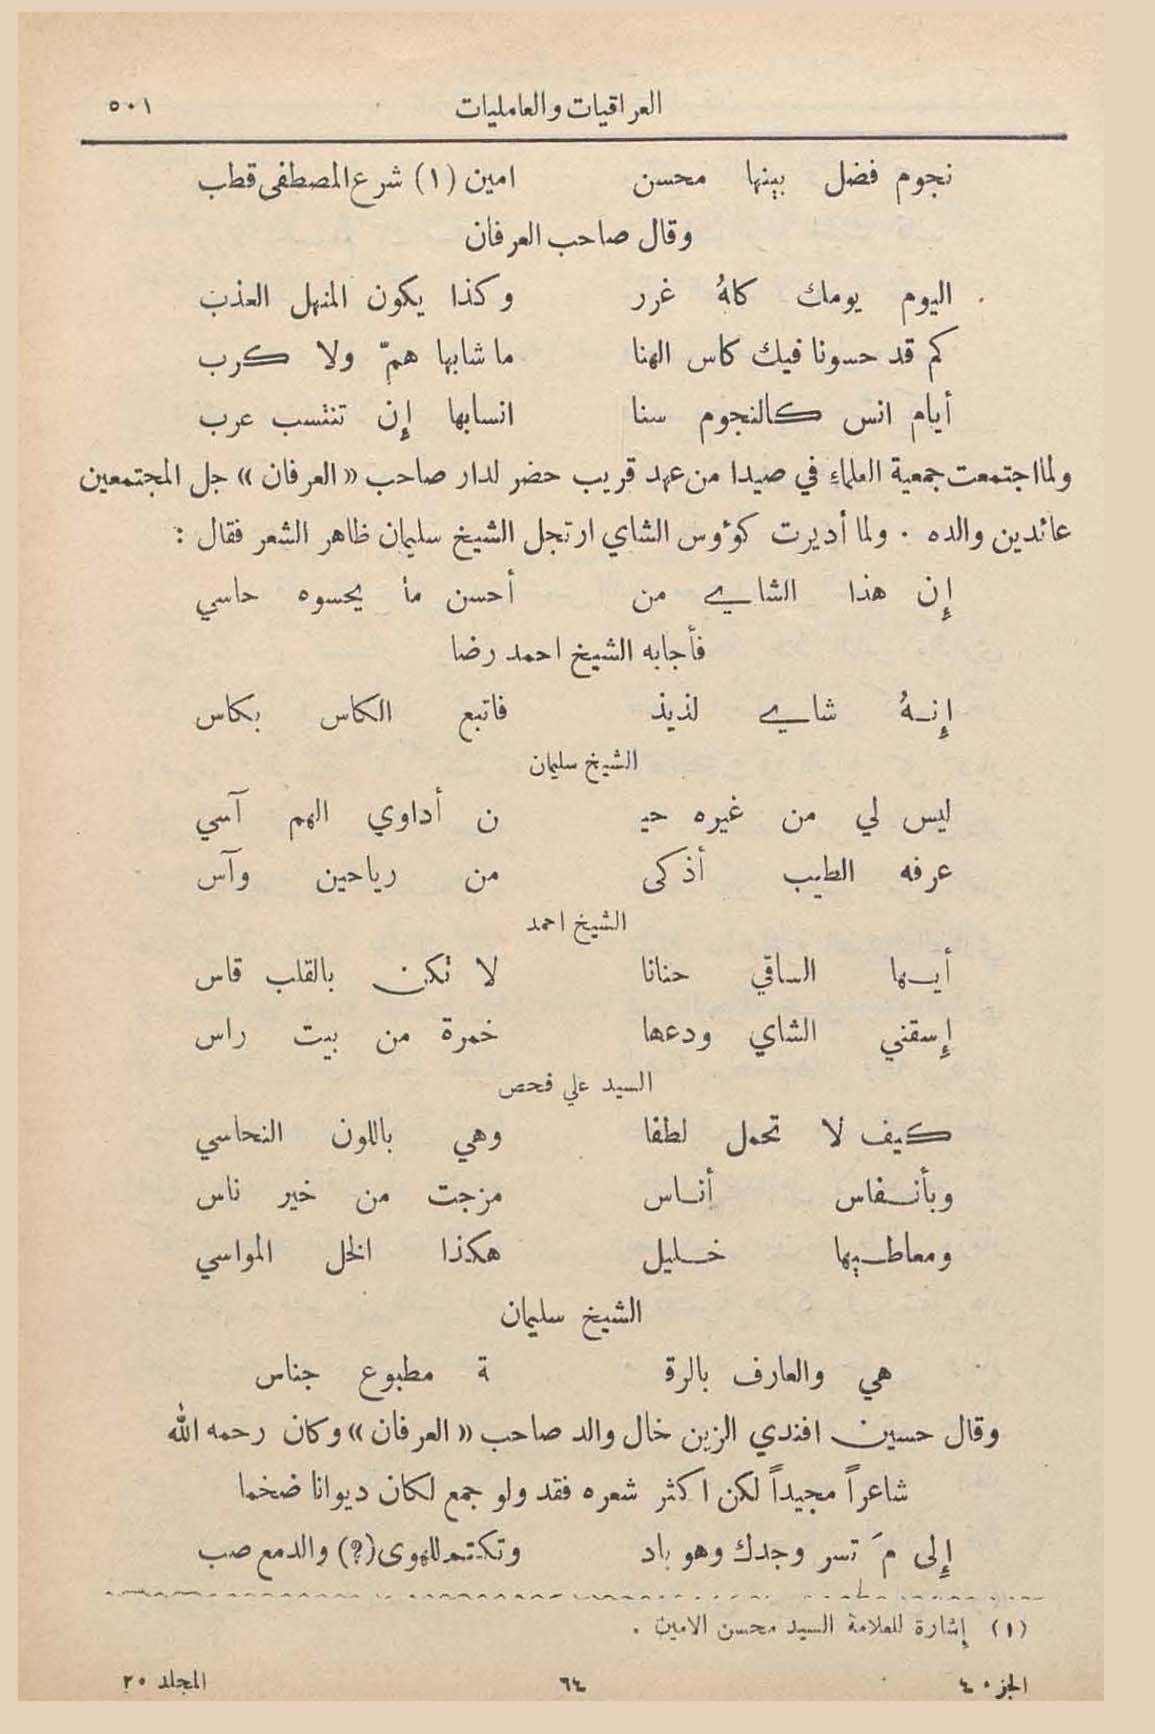 العراقيات والعامليات ٥٠١
نجوم فضل بينها محسن امين (١) شرع المصطفى قطب
وقال صاحب العرفان
اليوم يومك كلهُ غرر وكذا يكون المنهل العذب
كم قد حسونا فيك كاس الهنا ما شابها همّ ولا كرب
أيام انس كالنجوم سنا انسابها إن تنتسب عرب
ولما اجتمعت جمعية العلماء في صيدا من عهد قريب حضر لدار صاحب «العرفان» جل المجتمعين
عائدين والده . ولما أديرت كوءوس الشاي ارتجل الشيخ سليمان ظاهر الشعر فقال :
إن هذا الشاي من أحسن ما يحسوه حاسي
فأجابه الشيخ احمد رضا
إنهُ شاي لذيذ فاتبع الكاس بكاس
الشيخ سليمان
ليس لي من غيره حيـ ن أداوي الهم آسي
عرفه الطيب أذكى من رياحين وآس
الشيخ احمد
أيها الساقي حنانا لا تكن بالقلب قاس
إسقني الشاي ودعها خمرة من بيت راس
السيد علي فحص
كيف لا تحمل لطفا وهي باللون النحاسي
وبأنفاس أناس مزجت من خير ناس
ومعاطيها خليل هكذا الخل المواسي
الشيخ سليمان
هي والعارف بالرقـ ة مطبوع جناس
وقال حسين افندي الزين خال والد صاحب «العرفان» وكان رحمه الله
شاعراً مجيداً لكن اكثر شعره فقد ولو جمع لكان ديوانا ضخما
إلى مَ تسر وجدك وهو باد وتكتم للهوى (؟) والدمع صب
(١) إشارة للعلامة السيد محسن الامين .
الجزء ٤ ٦٤ المجلد ٢٥